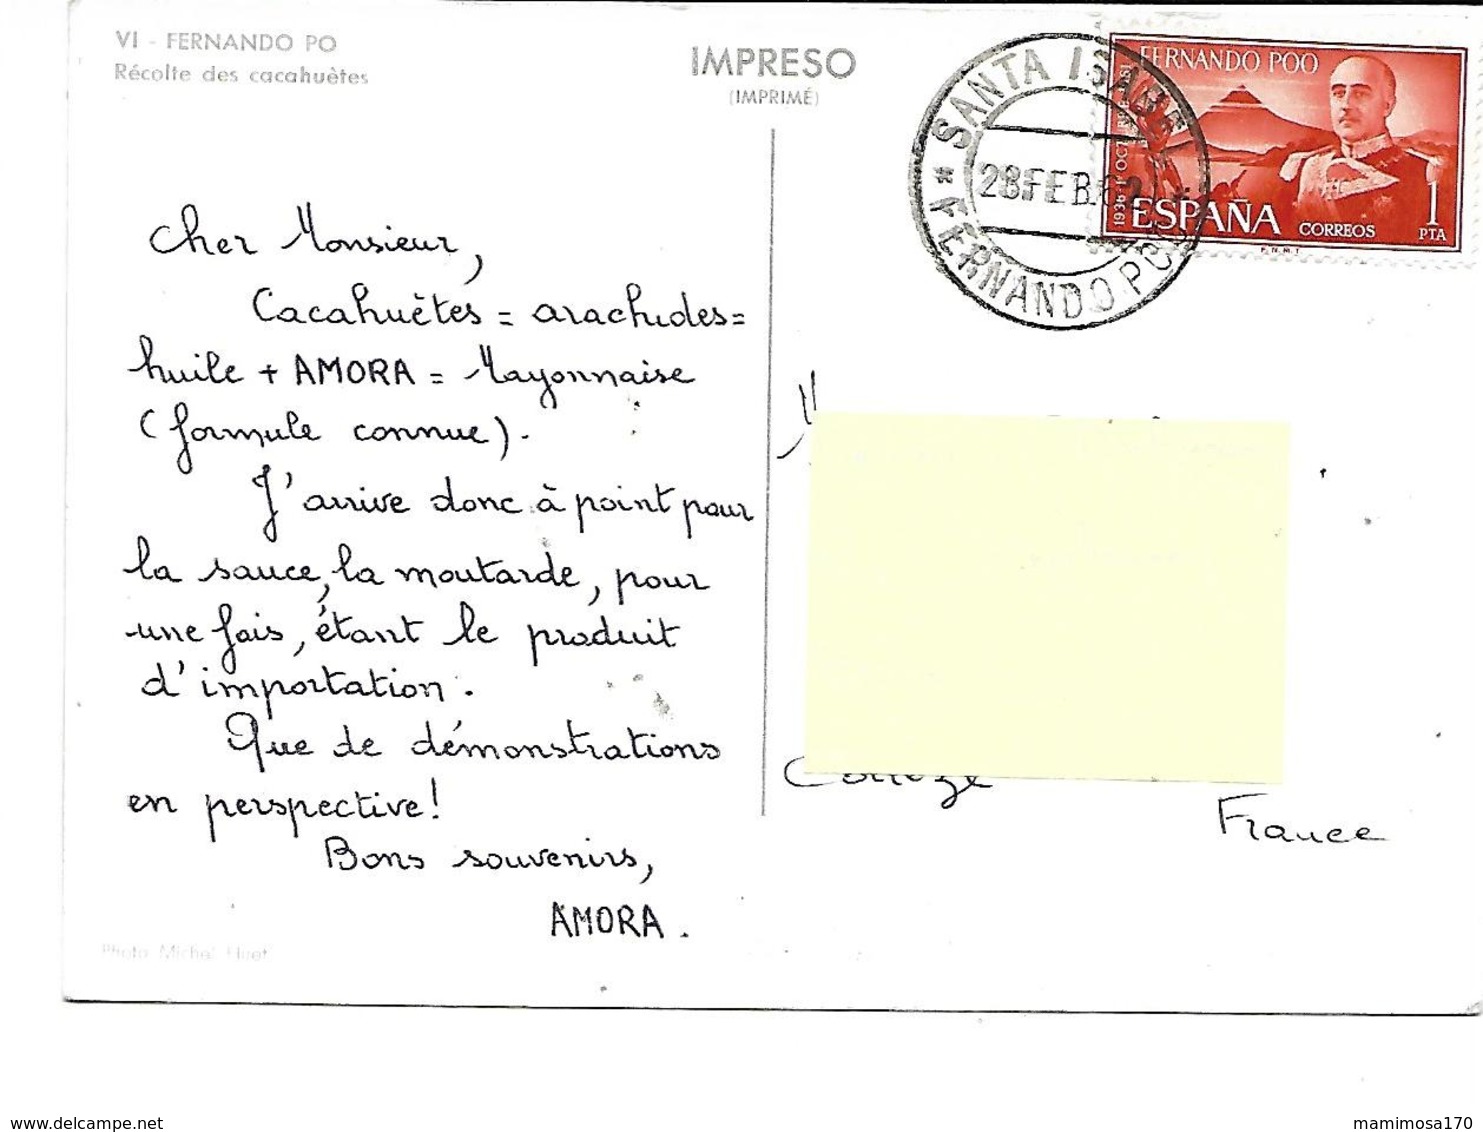 VI - FERNANDO PO
Récolte des cacahuètes
IMPRESO
(IMPRIMÉ)
SANTA ISABEL
28 FEB. 62
* FERNANDO POO *
FERNANDO POO
1936 1º OCTUBRE 1961
ESPAÑA
CORREOS
1
PTA
F.N.M.T
Cher Monsieur,
Cacahuètes = arachides =
huile + AMORA = Mayonnaise
(formule connue).
J'arrive donc à point pour
la sauce, la moutarde, pour
une fois, étant le produit
d'importation.
Que de démonstrations
en perspective!
Bons souvenirs,
AMORA.
M
Corrèze
France
Photo Michel Huet
delcampe.net
mamimosa170